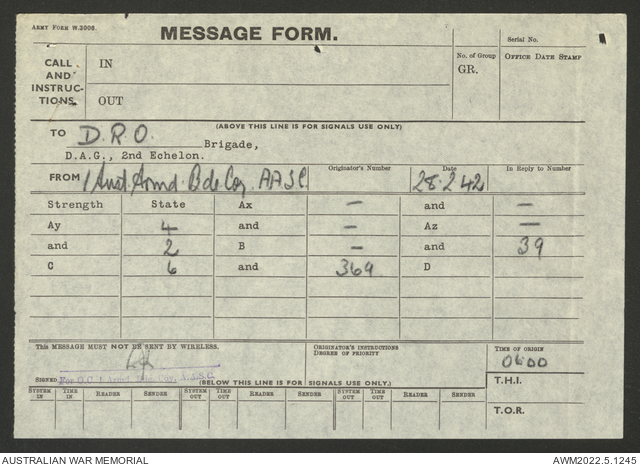 ARMY FORM W.2008.
MESSAGE FORM.
Serial No.
CALL AND INSTRUCTIONS.
IN
OUT
No. of Group
GR.
OFFICE DATE STAMP
(ABOVE THIS LINE IS FOR SIGNALS USE ONLY)
TO D.R.O. Brigade,
D.A.G., 2nd Echelon.
FROM 1 Aust Armd. Bde Coy. AASC
Originator's Number
Date 28.2.42
In Reply to Number
Strength State Ax — and —
Ay 4 and — Az —
and 2 B — and 39
C 6 and 369 D
This MESSAGE MUST NOT BE SENT BY WIRELESS.
ORIGINATOR'S INSTRUCTIONS
DEGREE OF PRIORITY
TIME OF ORIGIN
0600
SIGNED For O.C. 1 Armd. Bde. Coy. A.A.S.C.
(BELOW THIS LINE IS FOR SIGNALS USE ONLY.)
T.H.I.
SYSTEM IN TIME IN READER SENDER SYSTEM OUT TIME OUT READER SENDER SYSTEM OUT TIME OUT READER SENDER
T.O.R.
AUSTRALIAN WAR MEMORIAL
AWM2022.5.1245